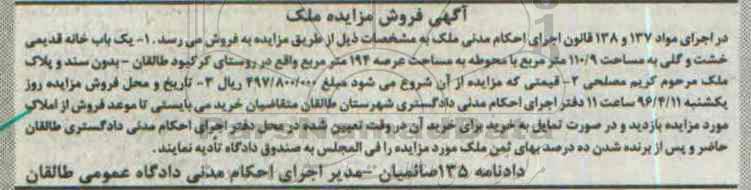 آگهی فروش مزایده ملک
در اجرای مواد ۱۳۷ و ۱۳۸ قانون اجرای احکام مدنی ملک به مشخصات ذیل از طریق مزایده به فروش می رسد. ۱- یک باب خانه قدیمی
خشت و گلی به مساحت ۱۱۰/۹ متر مربع با محوطه به مساحت عرصه ۱۹۴ متر مربع واقع در روستای کرکبود طالقان - بدون سند و پلاک
ملک مرحوم کریم مصلحی ۲- قیمتی که مزایده از آن شروع می شود مبلغ ۴۹۷/۸۰۰/۰۰۰ ریال ۳- تاریخ و محل فروش مزایده روز
یکشنبه ۹۶/۴/۱۱ ساعت ۱۱ دفتر اجرای احکام مدنی دادگستری شهرستان طالقان متقاضیان خرید می بایستی تا موعد فروش از املاک
مورد مزایده بازدید و در صورت تمایل به خرید برای خرید آن در وقت تعیین شده در محل دفتر اجرای احکام مدنی دادگستری طالقان
حاضر و پس از برنده شدن ده درصد بهای ثمن ملک مورد مزایده را فی المجلس به صندوق دادگاه تأدیه نمایند.
دادنامه ۱۳۵ صائمیان -مدیر اجرای احکام مدنی دادگاه عمومی طالقان